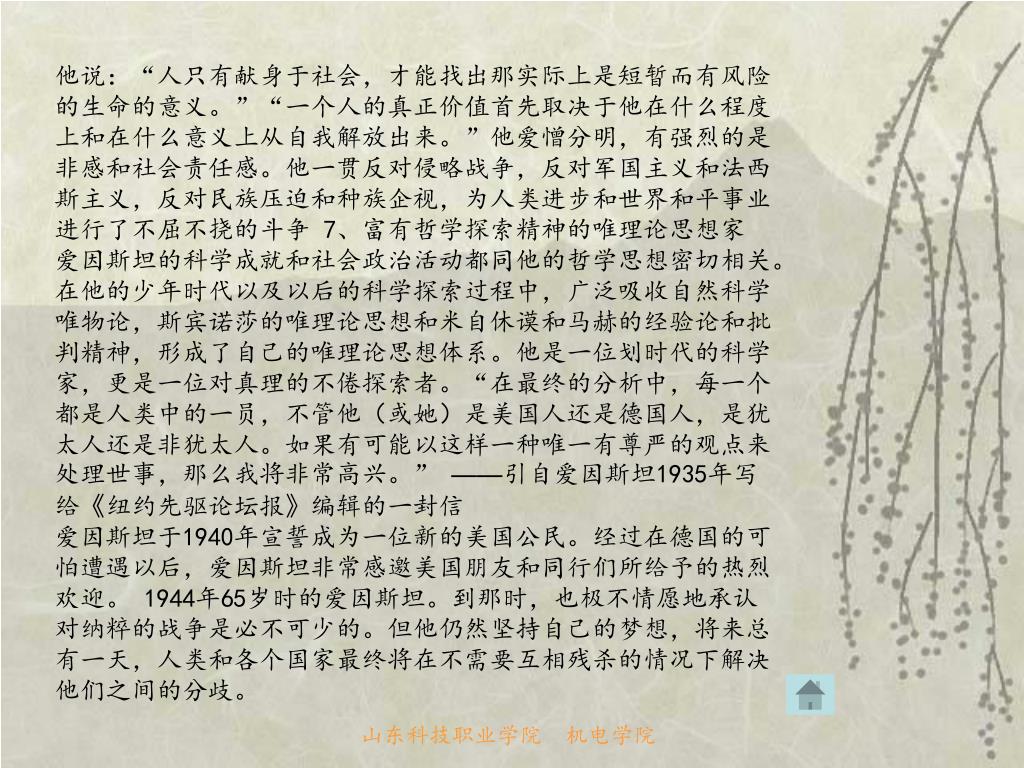 他说：“人只有献身于社会，才能找出那实际上是短暂而有风险
的生命的意义。”“一个人的真正价值首先取决于他在什么程度
上和在什么意义上从自我解放出来。”他爱憎分明，有强烈的是
非感和社会责任感。他一贯反对侵略战争，反对军国主义和法西
斯主义，反对民族压迫和种族企视，为人类进步和世界和平事业
进行了不屈不挠的斗争 7、富有哲学探索精神的唯理论思想家
爱因斯坦的科学成就和社会政治活动都同他的哲学思想密切相关。
在他的少年时代以及以后的科学探索过程中，广泛吸收自然科学
唯物论，斯宾诺莎的唯理论思想和米自休谟和马赫的经验论和批
判精神，形成了自己的唯理论思想体系。他是一位划时代的科学
家，更是一位对真理的不倦探索者。“在最终的分析中，每一个
都是人类中的一员，不管他（或她）是美国人还是德国人，是犹
太人还是非犹太人。如果有可能以这样一种唯一有尊严的观点来
处理世事，那么我将非常高兴。” ——引自爱因斯坦1935年写
给《纽约先驱论坛报》编辑的一封信
爱因斯坦于1940年宣誓成为一位新的美国公民。经过在德国的可
怕遭遇以后，爱因斯坦非常感邀美国朋友和同行们所给予的热烈
欢迎。 1944年65岁时的爱因斯坦。到那时，也极不情愿地承认
对纳粹的战争是必不可少的。但他仍然坚持自己的梦想，将来总
有一天，人类和各个国家最终将在不需要互相残杀的情况下解决
他们之间的分歧。
山东科技职业学院 机电学院